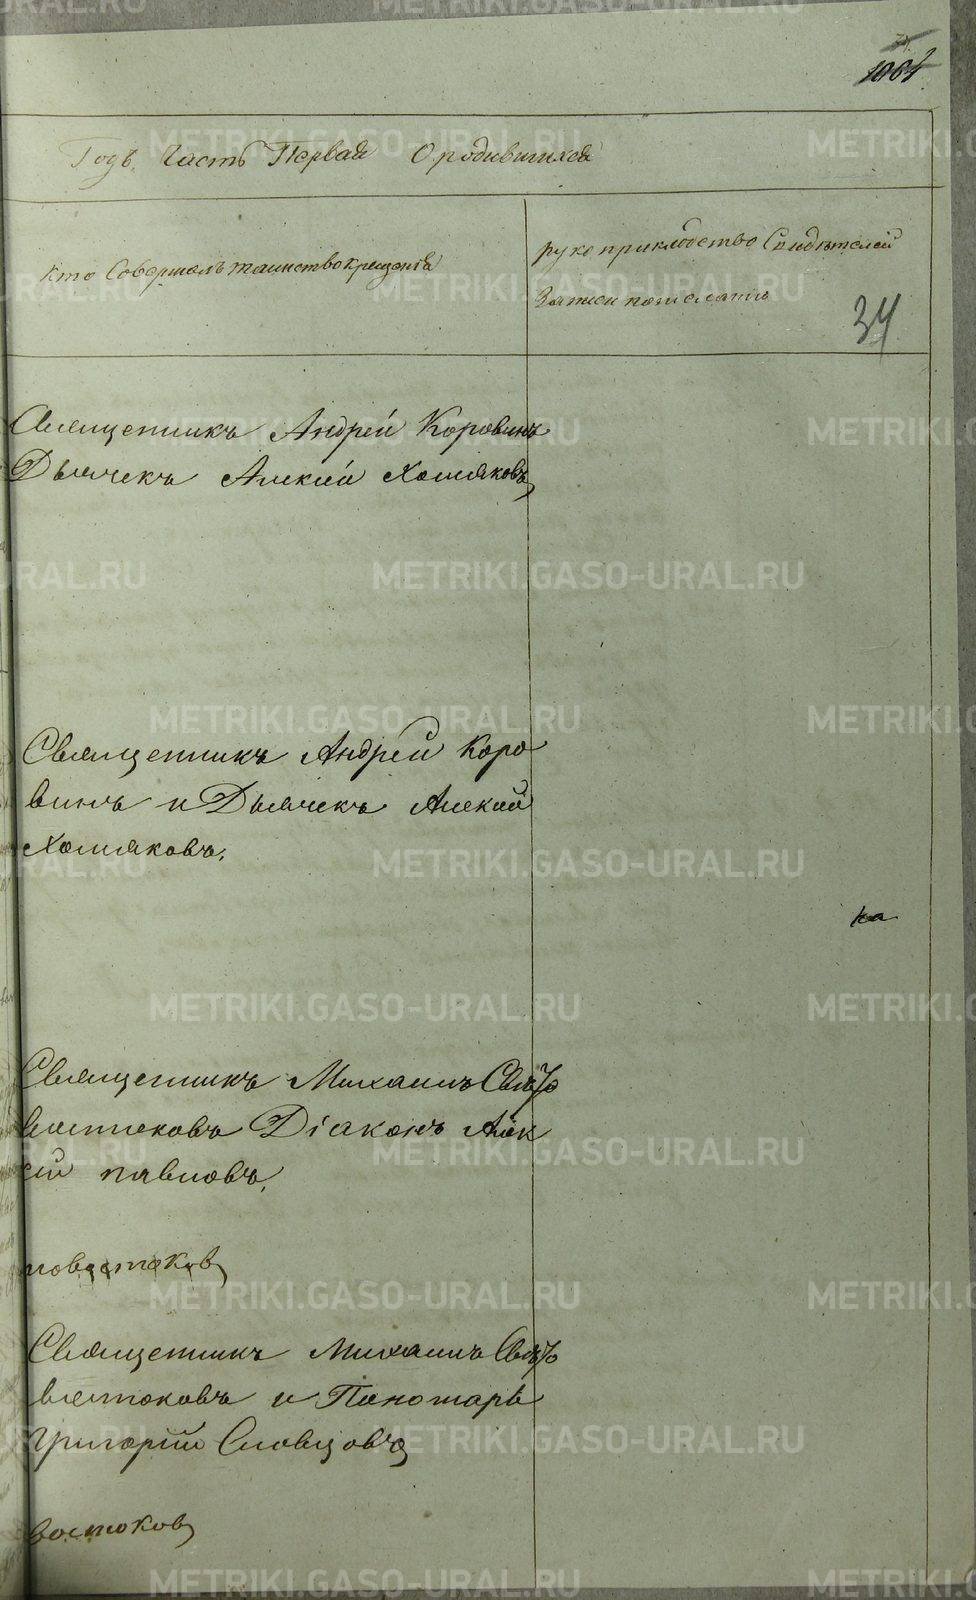 1064
Годъ. Часть Первая О родившихся
Кто Совершалъ таинство крещенія
рукоприкладство Свидѣтелей
записи по желанію
34
Священникъ Андрей Коровинъ
Дьячекъ Алекій Хомяковъ
Священникъ Андрей Коро
винъ и Дьячекъ Алекий
Хомяковъ.
ка
Священникъ Михаилъ Свѣто
востоковъ Діаконъ Алек
ѣй Павловъ.
товостоковъ
Священникъ Михаилъ Свѣто
востоковъ и Пономарь
Григорій Словцовъ
востоковъ
METRIKI.GASO-URAL.RU